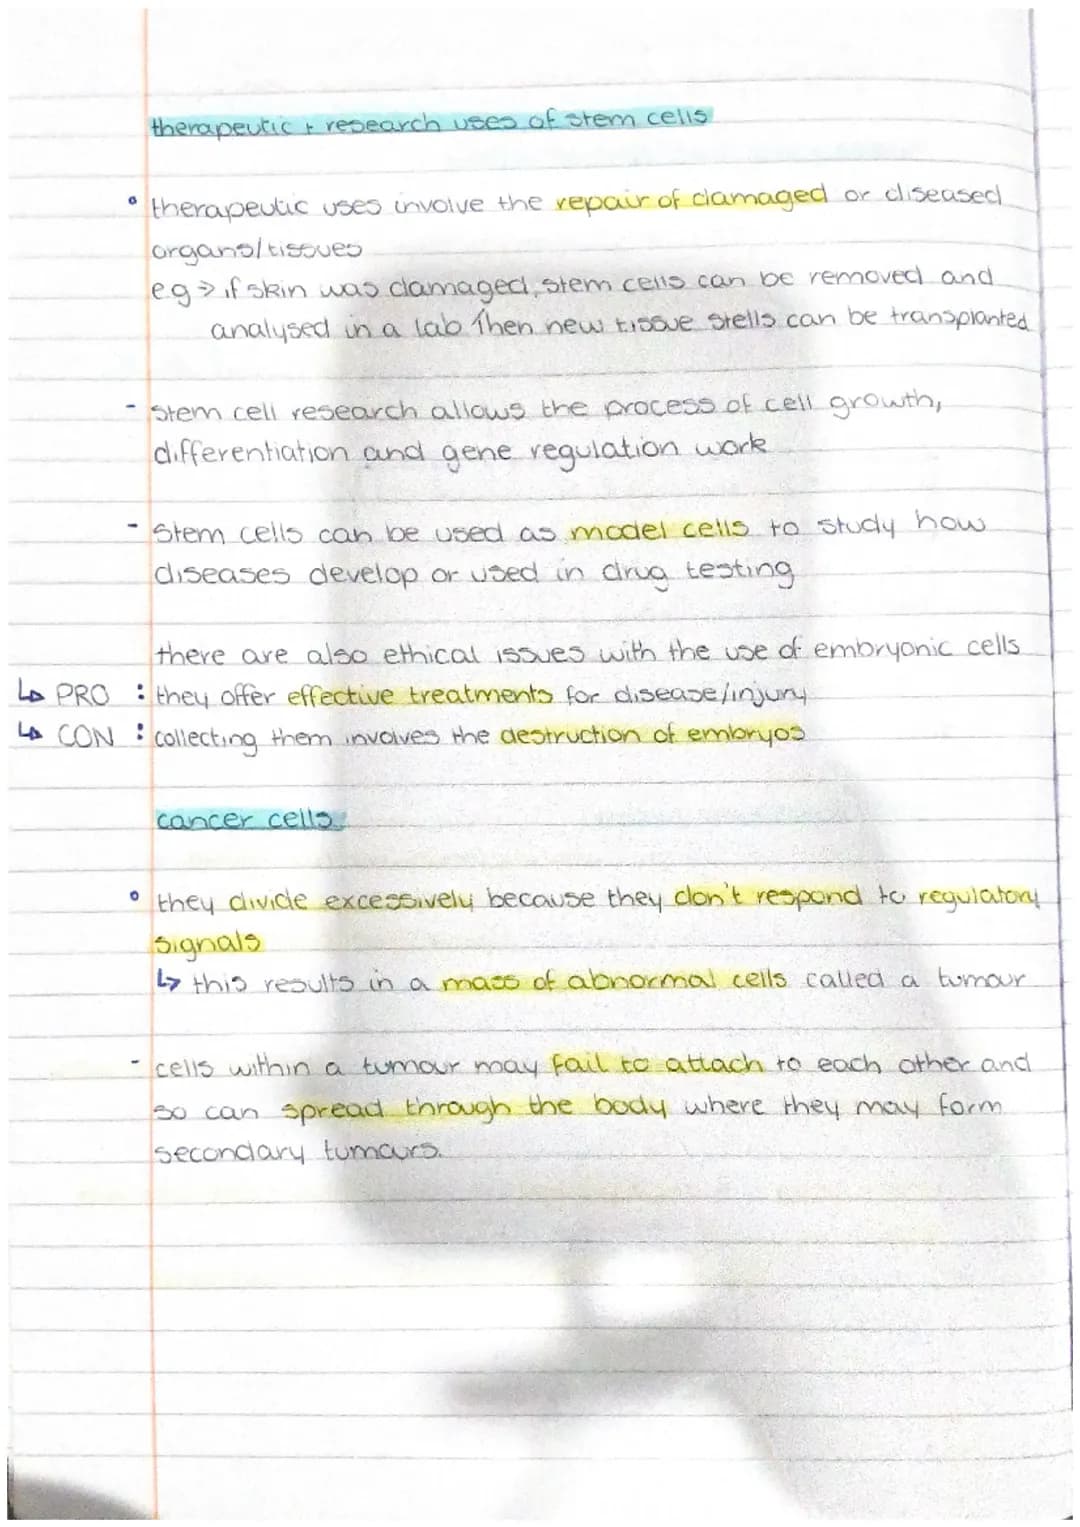 therapeutic + research uses of stem cells
• therapeutic uses involve the repair of damaged or diseased
organs/tissues
eg → if skin was damaged, stem cells can be removed and
analysed in a lab. Then new tissue stells can be transplanted
- Stem cell research allows the process of cell growth,
differentiation and gene regulation work
- Stem cells can be used as model cells to study how
diseases develop or used in drug testing
there are also ethical issues with the use of embryonic cells
↳ PRO : they offer effective treatments for disease/injury
↳ CON : collecting them involves the destruction of embryos
cancer cells
• they divide excessively because they don't respond to regulatory
signals
↳ this results in a mass of abnormal cells called a tumour
- cells within a tumour may fail to attach to each other and
so can spread through the body where they may form
secondary tumours.